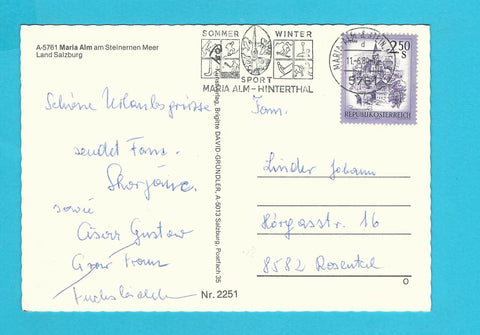 A-5761 Maria Alm am Steinernen Meer
Land Salzburg
SOMMER WINTER
SPORT
MARIA ALM - HINTERTHAL
5761
2.50
S
REPUBLIK ÖSTERREICH
Schöne Urlaubsgrüsse
sendet Fam.
sowie
Gustav
Franz
Fam.
Linder Johann
Hörgasstrass. 16
8582 Rosental
Brigitte DAVID-GRÜNDLER, A-5013 Salzburg, Postfach 35
Nr. 2251